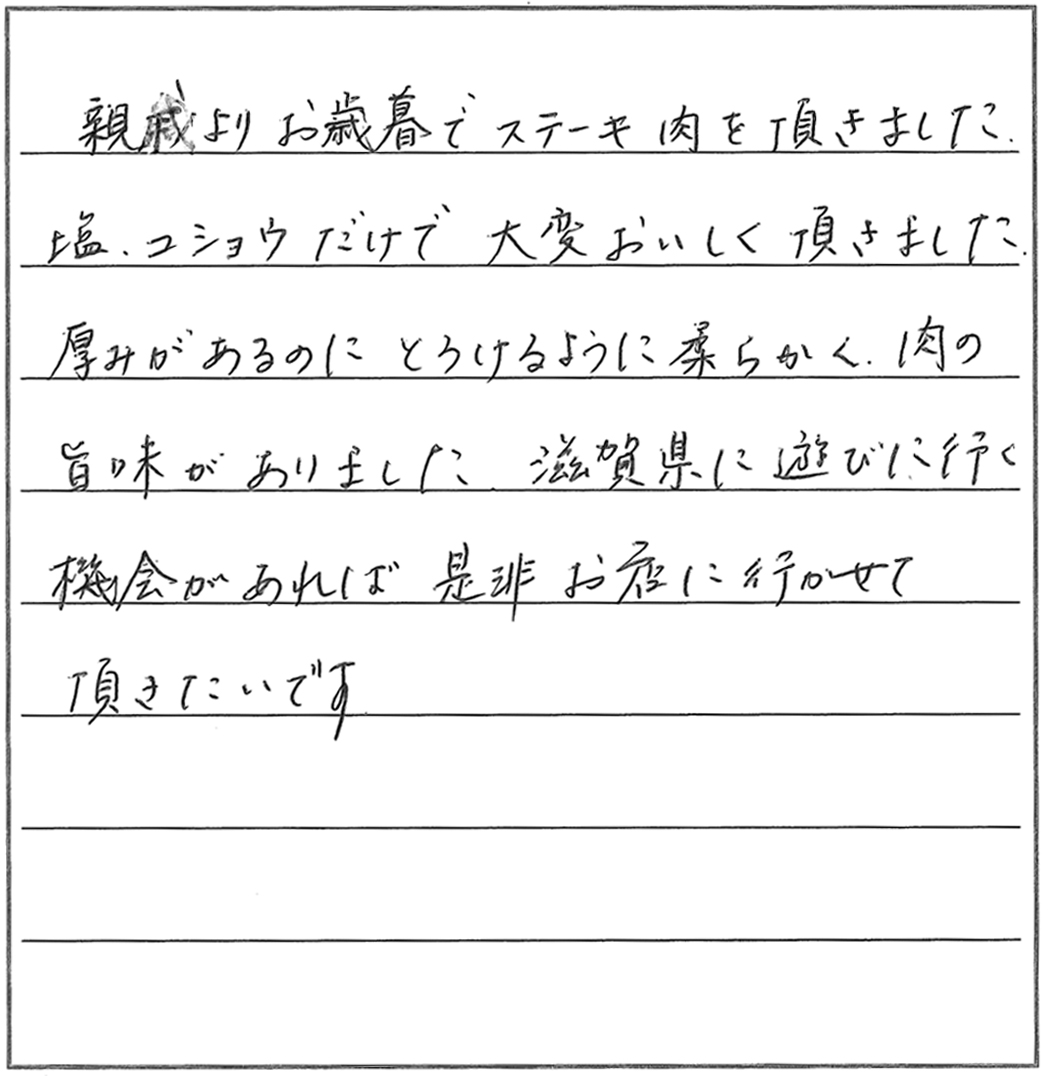 親戚よりお歳暮でステーキ肉を頂きました.
塩、コショウだけで大変おいしく頂きました.
厚みがあるのにとろけるように柔らかく、肉の
旨味がありました、滋賀県に遊びに行く
機会があれば是非お店に行かせて
頂きたいです